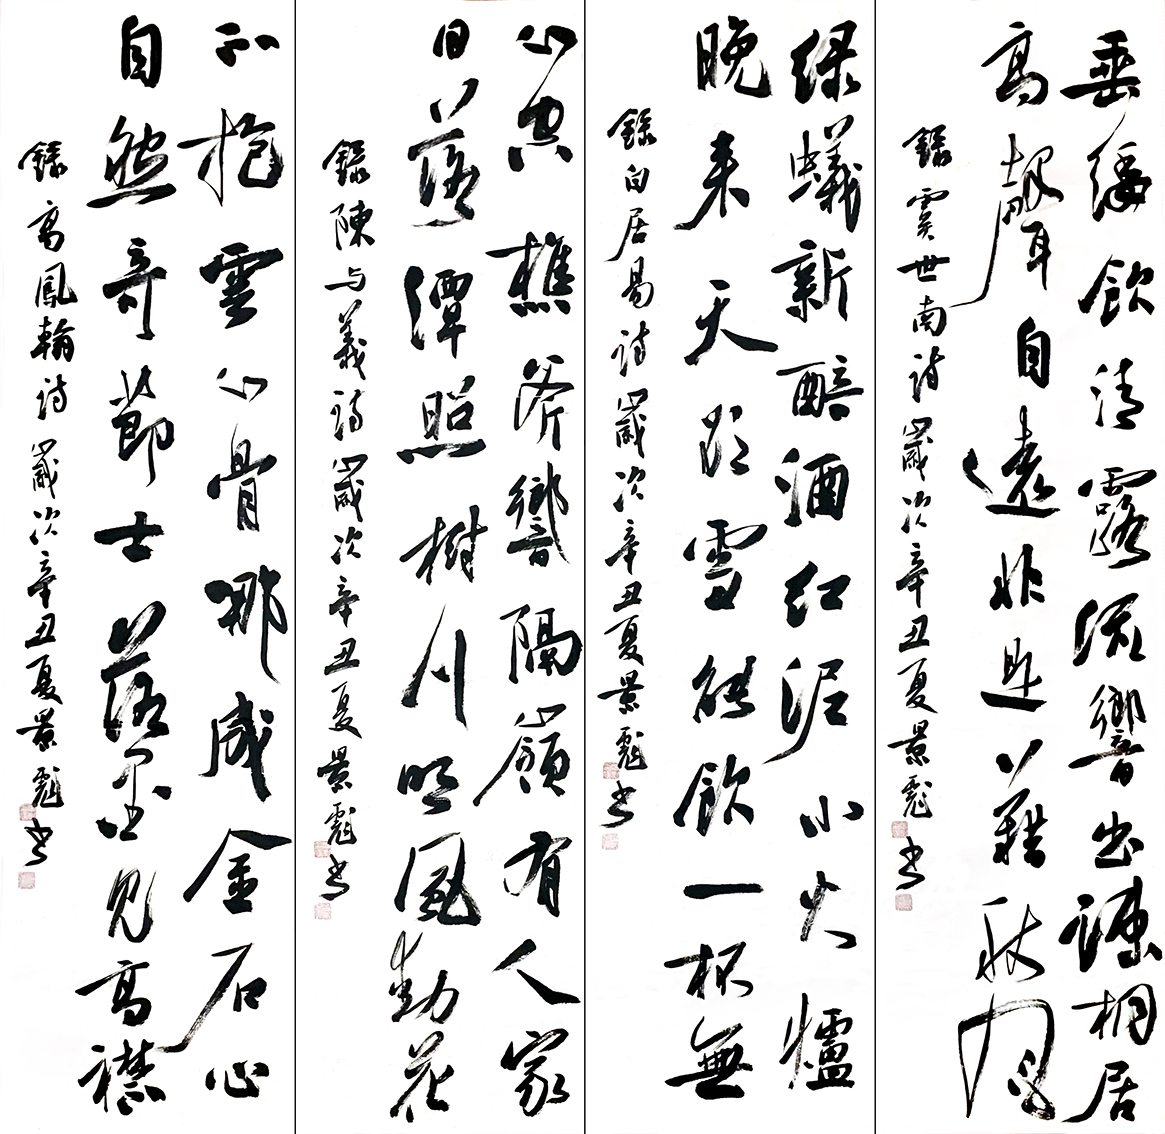 垂緌飲清露流響出疎桐居
高聲自遠非是藉秋風
錄虞世南詩歲次辛丑夏景彪书
绿蟻新醅酒红泥小火爐
晚来天欲雪能飲一杯無
錄白居易詩歲次辛丑夏景彪书
山空樵斧響隔嶺有人家
日落潭照樹川明風動花
錄陳与義詩歲次辛丑夏景彪书
不抱雲山骨哪成金石心
自然奇節士落墨見高襟
錄高鳳翰詩歲次辛丑夏景彪书